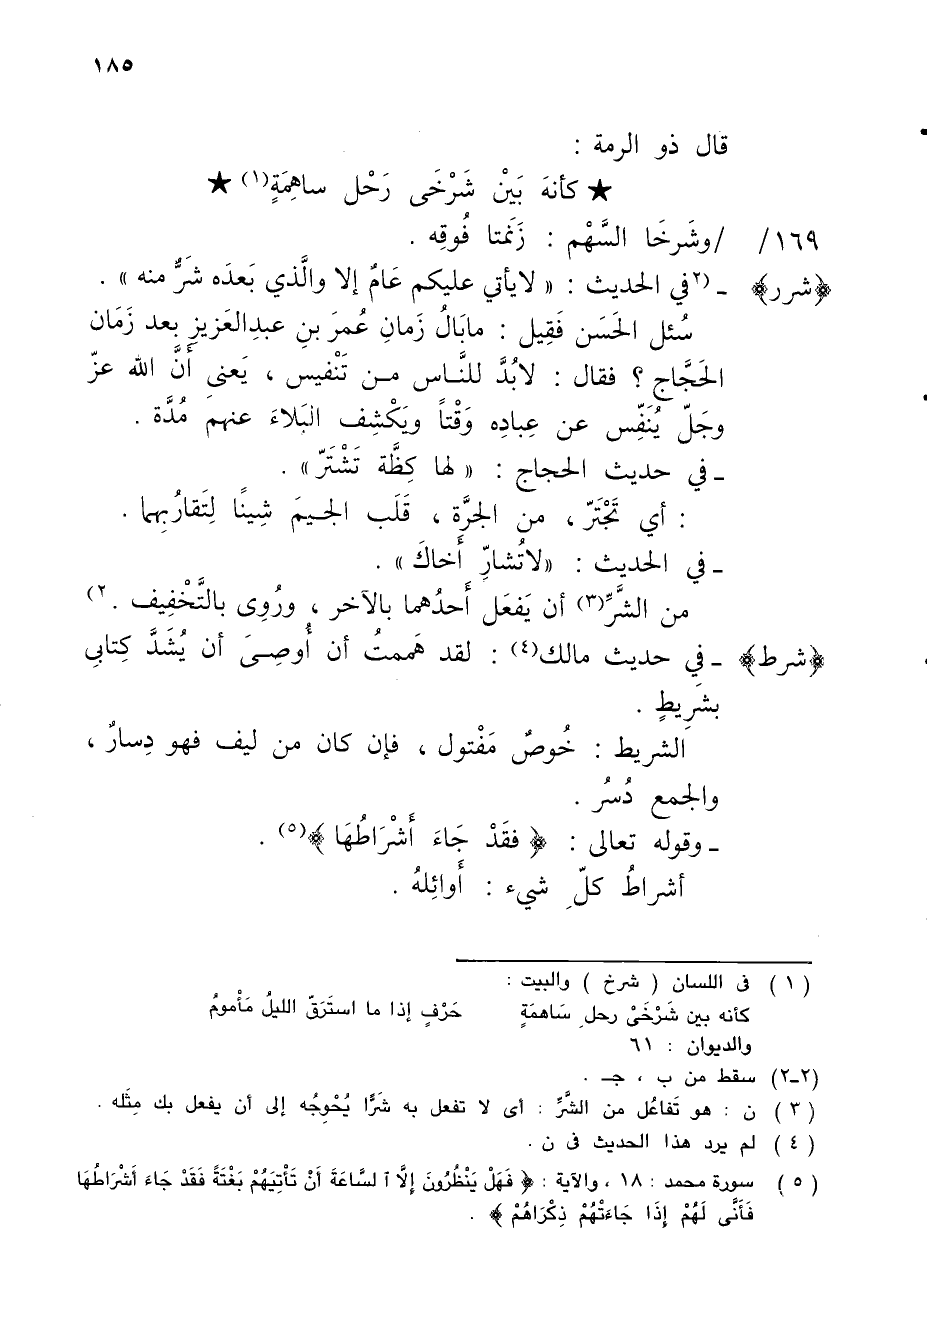 ١٨٥
قال ذو الرمة :
★ كأنهَ بَيْن شَرْخَى رَحْل ساهِمَةٍ(١) ★
١٦٩/ /وشَرخَا السَّهْم : زَنَمتا فُوقِه .
﴿شرر﴾ ـ (٢في الحديث : « لايأتي عليكم عَامٌ إلا والَّذي بَعدَه شَرٌّ منه » .
سُئل الحَسَن فَقِيل : مابَالُ زَمانِ عُمرَ بنِ عبدالعَزيزِ بعد زَمَان
الحَجَّاج ؟ فقال : لابُدَّ للنَّاس من تَنْفيس ، يَعنى أنَّ الله عزّ
وجَلّ يُنَفِّس عن عِبادِه وَقْتاً ويَكْشِف البَلاءَ عنهم مُدَّة .
ـ في حديث الحجاج : « لها كِظَّة تَشْتَرّ » .
: أي تَجْتَرّ ، من الجرَّة ، قَلَب الجيمَ شِينًا لِتَقارُبِهما .
ـ في الحديث : «لاتُشارِّ أَخاكَ » .
من الشَّرِّ(٣) أن يَفعَل أَحدُهما بالآخر ، ورُوِى بالتَّخْفِيف .٢)
﴿شرط﴾ ـ في حديث مالك(٤) : لقد هَممتُ أن أُوصِىَ أن يُشَدَّ كِتابي
بشَرِيطٍ .
الشريط : خُوصٌ مَفْتول ، فإن كان من ليف فهو دِسارٌ ،
والجمع دُسُر .
ـ وقوله تعالى : ﴿ فقَدْ جَاءَ أَشْرَاطُهَا ﴾(٥) .
أشراطُ كلّ شيء : أَوائِلهُ .
( ١ ) فى اللسان ( شرخ ) والبيت :
كأنه بين شَرْخَىْ رحل سَاهمَةٍ حَرْفٍ إذا ما استَرَقّ الليلُ مَأْمومُ
والديوان : ٦١
(٢ـ٢) سقط من ب ، جـ .
( ٣ ) ن : هو تَفاعُل من الشَّرِّ : أى لا تفعل به شَرًّا يُحْوِجُه إلى أن يفعل بك مِثْله .
( ٤ ) لم يرد هذا الحديث فى ن .
( ٥ ) سورة محمد : ١٨ ، والآية : ﴿ فَهَلْ يَنْظُرُونَ إِلَّا ٱلسَّاعَةَ أَنْ تَأْتِيَهُمْ بَغْتَةً فَقَدْ جَاءَ أَشْرَاطُهَا
فَأَنَّى لَهُمْ إِذَا جَاءَتْهُمْ ذِكْرَاهُمْ ﴾ .